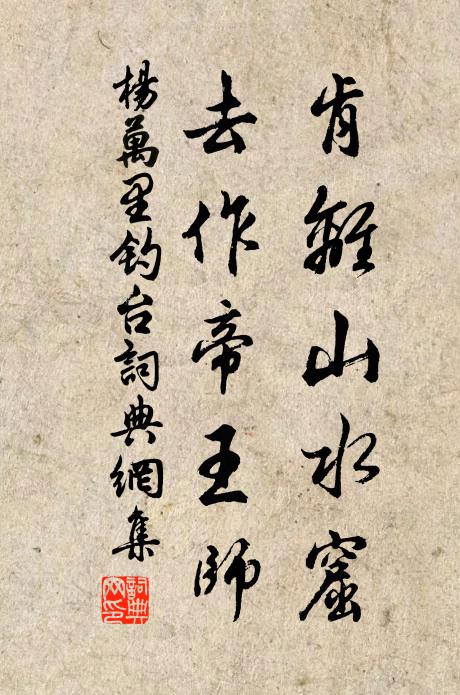 肯離山水窟
去作帝王師
楊萬里釣台詞典網集
詞典網印